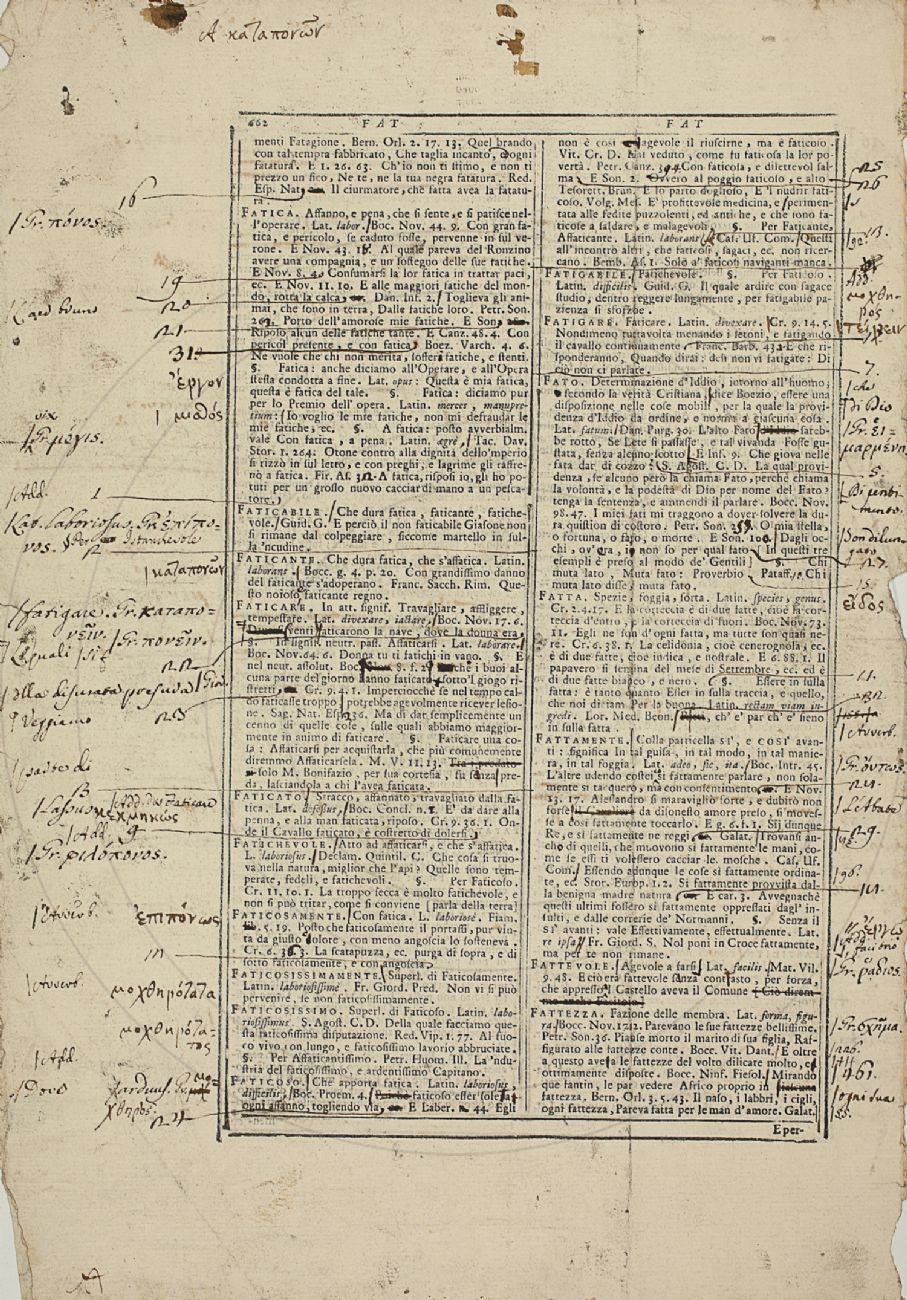 A καταπονῶν
662 FAT FAT
menti Fatagione. Bern. Orl. 2. 17. 13. Quel brando
con tal tempra fabbricato, Che taglia incanto, ed ogni
fatatura. E 1. 26. 63. Ch'io non ti stimo, e non ti
prezzo un fico, Ne te, ne la tua negra fatatura. Red.
Esp. Nat. Il ciurmatore, che fatta avea la fatatu-
ra.
FATICA. Affanno, e pena, che si sente, e si patisce nel-
l'operare. Lat. labor. Boc. Nov. 44. 9. Con gran fa-
tica, e pericolo, se caduto fosse, pervenne in sul ve-
rone. E Nov. 43. Al quale pareva del Ronzino
avere una compagnia, e un sostegno delle sue fatiche.
E Nov. 8. 4. Consumarsi la lor fatica in trattar paci,
ec. E Nov. 11. 10. E alle maggiori fatiche del mon-
do, rotta la calca, Dan. Inf. 2. Toglieva gli ani-
mai, che sono in terra, Dalle fatiche loro. Petr. Son.
263. Porto dell'amorose mie fatiche. E Son.
Riposo alcun delle fatiche tante. E Canz. 48. 4. Con
pericol presente, e con fatica. Boez. Varch. 4. 6.
Ne vuole che chi non merita, sofferi fatiche, e stenti.
§. Fatica: anche diciamo all'Operare, e all'Opera
stessa condotta a fine. Lat. opus: Questa è mia fatica,
questa è fatica del tale. §. Fatica: diciamo pur
per lo Premio dell'opera. Latin. merces, manupre-
tium: Io voglio le mie fatiche, non mi defraudar le
mie fatiche, ec. §. A fatica: posto avverbialm.
vale Con fatica, a pena. Latin. ægrè, Tac. Dav.
Stor. 1. 264. Otone contro alla dignità dello'mperio
si rizzò in sul letto, e con preghi, e lagrime gli raffre-
nò a fatica. Fir. As. A fatica, risposi io, gli ho po-
tuti per un grosso nuovo cacciar di mano a un pesca-
tore.
FATICABILE. Che dura fatica, faticante, fatiche-
vole. Guid. G. E perciò il non faticabile Giasone non
si rimane dal colpeggiare, siccome martello in sul-
la 'ncudine.
FATICANTE. Che dura fatica, che s'affatica. Latin.
laborans. Bocc. g. 4. p. 20. Con grandissimo danno
del faticante s'adoperano. Franc. Sacch. Rim. Que-
sto noioso faticante regno.
FATICARE. In att. signif. Travagliare, affliggere,
tempestare. Lat. divexare, iactare. Boc. Nov. 17. 6.
venti faticarono la nave, dove la donna era.
§. In signif. neutr. pass. Affaticarsi. Lat. laborare.
Boc. Nov. 64. 6. Donga tu ti fatichi in vano. §. E
nel neut. assolut. Boc. 8. f. 2. che i buoi al-
cuna parte del giorno hanno faticato sotto'l giogo ri-
stretti. Cr. 9. 4. 1. Imperciocchè se nel tempo cal-
do faticasse troppo, potrebbe agevolmente ricever lesio-
ne. Sag. Nat. Esp. 236. Ma di dar semplicemente un
cenno di quelle cose, sulle quali abbiamo maggior-
mente in animo di faticare. §. Faticare una co-
sa: Affaticarsi per acquistarla, che più comunemente
diremmo Affaticarsela. M. V. 11. 13. Tra i predato-
ri solo M. Bonifazio, per sua cortesia, fu sanza pre-
da, lasciandola a chi l'avea faticata.
FATICATO. Stracco, affannato, travagliato dalla fa-
tica. Lat. defessus. Boc. Concl. n. 1. E' da dare alla
penna, e alla man faticata, riposo. Cr. 9. 36. 1. On-
de il Cavallo faticato, è costretto di dolersi.
FATICHEVOLE. Atto ad affaticarsi, e che s'affatica.
L. laboriosus. Declam. Quintil. C. Che cosa si truo-
va nella natura, miglior che l'api? Quelle sono tem-
perate, fedeli, e fatichevoli. §. Per Faticoso.
Cr. 11. 10. 1. La troppo secca è molto fatichevole, e
non si può tritar, come si conviene [parla della terra]
FATICOSAMENTE. Con fatica. L. laboriosè. Fiam.
5. 19. Posto che faticosamente il portassi, pur vin-
ta da giusto dolore, con meno angoscia lo sosteneva.
Cr. 6. 3. La scatapuzza, ec. purga di sopra, e di
sotto faticosamente, e con angoscia.
FATICOSISSIMAMENTE. Superl. di Faticosamente.
Latin. laboriosissimè. Fr. Giord. Pred. Non vi si può
pervenire, se non faticosissimamente.
FATICOSISSIMO. Superl. di Faticoso. Latin. labo-
riosissimus. S. Agost. C. D. Della quale facciamo que-
sta faticosissima disputazione. Red. Vip. 1. 77. Al fuo-
co vivo con lungo, e faticosissimo lavoro abbruciate.
§. Per Affaticantissimo. Petr. Huom. Ill. La 'ndu-
stria del faticosissimo, e ardentissimo Capitano.
FATICOSO. Che apporta fatica. Latin. laboriosus,
difficilis. Boc. Proem. 4. faticoso esser solea
ogni affanno, togliendo via, E Laber. n. 44. Egli
non è così malagevole il riuscirne, ma è faticoso.
Vit. Cr. D. Hai veduto, come fu faticosa la lor po-
vertà. Petr. Canz. 4. Con faticosa, e dilettevol sal-
ma. E Son. 2. Ovvero al poggio faticoso, e alto.
Tesorett. Brun. E lo parto doglioso, E'l nudrir fati-
coso. Volg. Mes. E' profittevole medicina, e sperimen-
tata alle fedite puzzolenti, ed antiche, e che sono fa-
ticose a saldare, e malagevoli. §. Per Faticante,
Affaticante. Latin. laborans. Cas. Uf. Com. Questi
all'incontro altri, che faticosi, sagaci, ec. non ricer-
cano. Bemb. As. 1. Solo a' faticosi naviganti manca.
FATIGABILE. Fatichevole. §. Per Faticoso.
Latin. difficilis. Guid. G. Il quale ardire con sagace
studio, dentro reggere lungamente, per fatigabile pa-
zienza si sforzoe.
FATIGARE. Faticare. Latin. divexare. Cr. 9. 14. 5.
Nondimeno tuttavolta menando i setoni, e fatigando
il cavallo continuamente. Franc. Barb. 43. 1. E che ri-
sponderanno, Quando dirai: desi non vi fatigate: Di
ciò non ci parlate.
FATO. Determinazion d'Iddio, intorno all'huomo;
o secondo la verità Cristiana, dice Boezio, essere una
disposizione nelle cose mobili, per la quale la provi-
denza d'Iddio da ordine, e norma a ciascuna cosa.
Lat. fatum. Dan. Purg. 30. L'alto Fato sareb-
be rotto, Se Lete si passasse, e tal vivanda Fosse gu-
stata, senza alcuno scotto. E Inf. 9. Che giova nelle
fata dar di cozzo. S. Agost. C. D. La qual provi-
denza, se alcuno però la chiama Fato, perchè chiama
la volontà, e la podestà di Dio per nome del Fato:
tenga la sentenza, e ammendi il parlare. Bocc. Nov.
98. 47. I miei fati mi traggono a dover solvere la du-
ra quistion di costoro. Petr. Son. 258. O mia stella,
o fortuna, o fato, o morte. E Son. 100. Dagli oc-
chi, ov'era, io non so per qual fato. In questi tre
esempli è preso al modo de' Gentili. §. Chi
muta lato, Muta fato: Proverbio. Pataff. Chi
muta lato disse, muta fato.
FATTA. Spezie, foggia, sorta. Latin. species, genus.
Cr. 2. 4. 17. E la corteccia è di due fatte, cioè la cor-
teccia d'entro, e la corteccia di fuori. Boc. Nov. 73.
11. Egli ne son d'ogni fatta, ma tutte son quasi ne-
re. Cr. 6. 38. 1. La celidonia, cioè cenerognola, ec.
è di due fatte, cioè indica, e nostrale. E 6. 88. 1. Il
papavero si semina del mese di Settembre, ec. ed è
di due fatte bianco, e nero. §. Essere in sulla
fatta: è tanto quanto Esser in sulla traccia, e quello,
che noi diciam Per la buona. Latin. rectam viam in-
gredi. Lor. Med. Beon. ch'e' par ch'e' sieno
in sulla fatta.
FATTAMENTE. Colla particella SI', e COSI' avan-
ti: significa In tal guisa, in tal modo, in tal manie-
ra, in tal foggia. Lat. adeo, sic, ita. Boc. Intr. 45.
L'altre udendo costei sì fattamente parlare, non sola-
mente si tacquero, ma con consentimento. E Nov.
13. 17. Alessandro si maravigliò forte, e dubitò non
forse da disonesto amore preso, si moves-
se a così fattamente toccarlo. E g. 6. f. 1. Sì dunque
Re, e sì fattamente ne reggi. Galat. Trovansi an-
cho di quelli, che muovono sì fattamente le mani, co-
me se essi ti volessero cacciar le mosche. Cas. Uf.
Com. Essendo adunque le cose sì fattamente ordina-
te, ec. Stor. Europ. 1. 2. Sì fattamente provvista dal-
la benigna madre natura. E car. 3. Avvegnachè
questi ultimi fossero sì fattamente oppressati dagl' in-
sulti, e dalle correrie de' Normanni. §. Senza il
SI' avanti: vale Effettivamente, effettualmente. Lat.
re ipsa. Fr. Giord. S. Nol poni in Croce fattamente,
ma per te non rimane.
FATTEVOLE. Agevole a farsi. Lat. facilis. Mat. Vil.
9. 48. E ciò era fattevole sanza contasto, per forza,
che appresso il Castello aveva il Comune. Ciò direm-
mo anche Fattojo.
FATTEZZA. Fazione delle membra. Lat. forma, figu-
ra. Bocc. Nov. 17. 2. Parevano le sue fattezze bellissime.
Petr. Son. 36. Pianse morto il marito di sua figlia, Raf-
figurato alle fattezze conte. Bocc. Vit. Dant. E oltre
a questo avea le fattezze del volto dilicate molto, e
ottimamente disposte. Bocc. Ninf. Fiesol. Mirando
que fantin, le par vedere Africo proprio in
fattezza. Bern. Orl. 3. 5. 43. Il naso, i labbri, i cigli,
ogni fattezza, Pareva fatta per le man d'amore. Galat.
Eper-
16
Gr. πόνος.
19
20
21
31
ἔργον
μισθός
Gr. μόγις.
Add.
1
Lat. laboriosus. Gr. ἐπίπο-
νος.
καταπονῶν
fatigare. Gr. καταπο-
νεῖν. Gr. πονεῖν.
22
23
Veggiamo
parte di
13
Lassus
Add. da Faticare
Add. 9
Gr. φιλόπονος.
Avverb. ἐπιπόνως
Avverb.
μοχθηρότατα
μοχθηρότα-
τος
Add.
24
25
26
13.
Add.
μοχθη-
ρός
7.
che
Di Dio
Gr. εἱ-
μαρμένη
5.
27.
15
εἶδος
11
Avverb.
Gr. οὕτως
29.
196.
Gr. ῥᾴδιος.
Gr. σχῆμα.
146
ogni sua